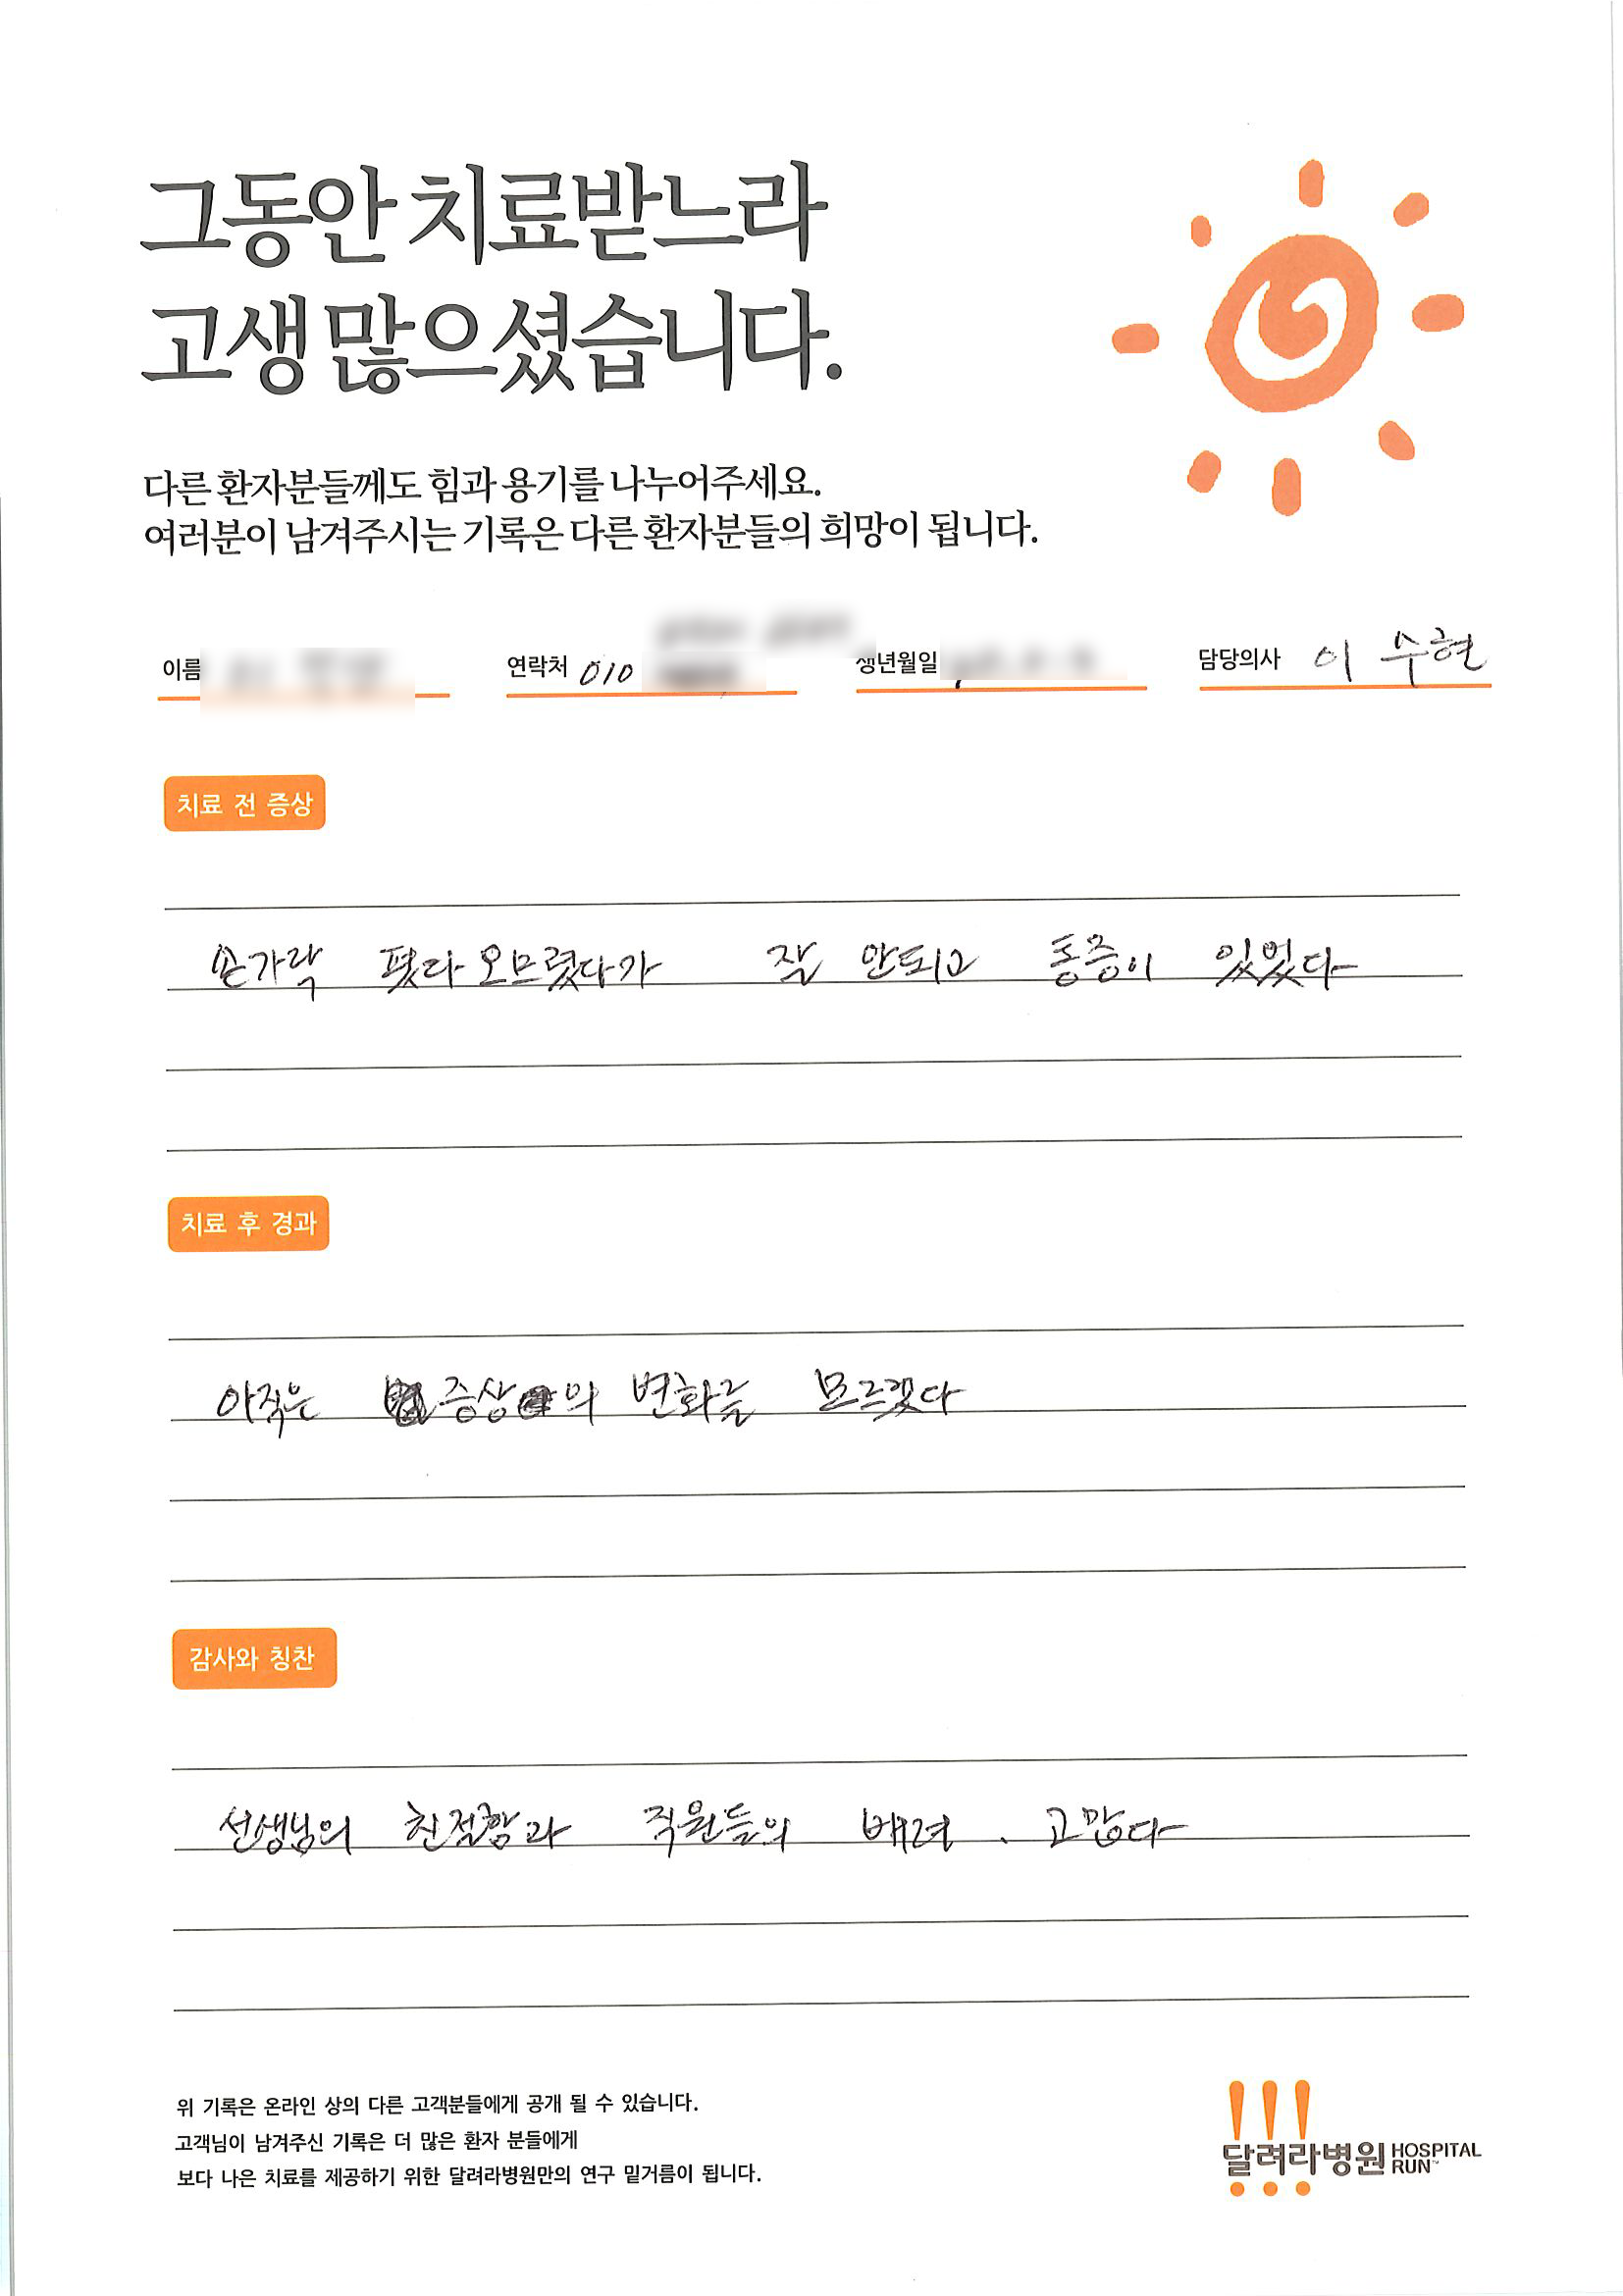 그동안 치료받느라
고생 많으셨습니다.
다른 환자분들께도 힘과 용기를 나누어주세요.
여러분이 남겨주시는 기록은 다른 환자분들의 희망이 됩니다.
이름 연락처 010 생년월일 담당의사 이 수현
치료 전 증상
손가락 폇다 오므렸다가 잘 안되고 통증이 있었다
치료 후 경과
아직은 증상의 변화를 모르겠다
감사와 칭찬
선생님의 친절함과 직원들의 배려. 고맙다
위 기록은 온라인 상의 다른 고객분들에게 공개 될 수 있습니다.
고객님이 남겨주신 기록은 더 많은 환자 분들에게
보다 나은 치료를 제공하기 위한 달려라병원만의 연구 밑거름이 됩니다.
달려라병원 HOSPITAL RUN™